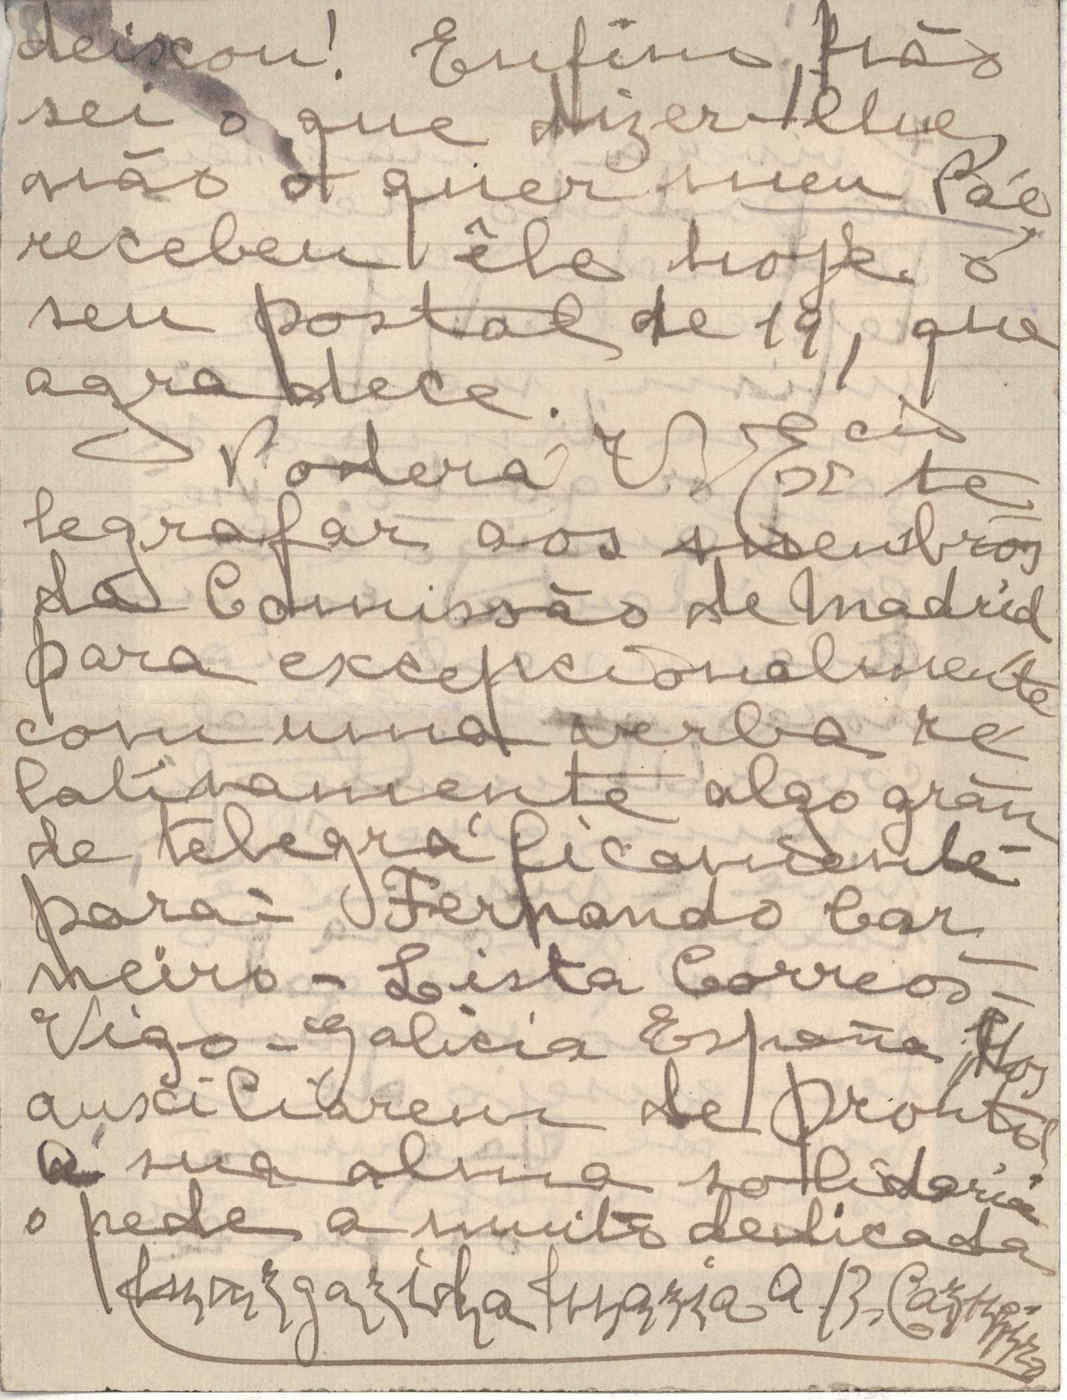 deixou! Enfim, não
sei o que dizer-lhe,
não o quer meu Páe
recebeu êle hoje o
seu postal de 19, que
agradece.
Poderá V. Ex.cia te
legrafar aos membros
da Comissão de Madrid
para excepcionalmente
com uma verba re
lativamente algo gran
de, telegráficamente
para - Fernando Car
neiro - Lista Correos -
Vigo - Galicia España, Nos
auxiliarem de pronto
á sua alma solidaria
o pede a muito dedicada
Margarida Maria A. B. Carneiro